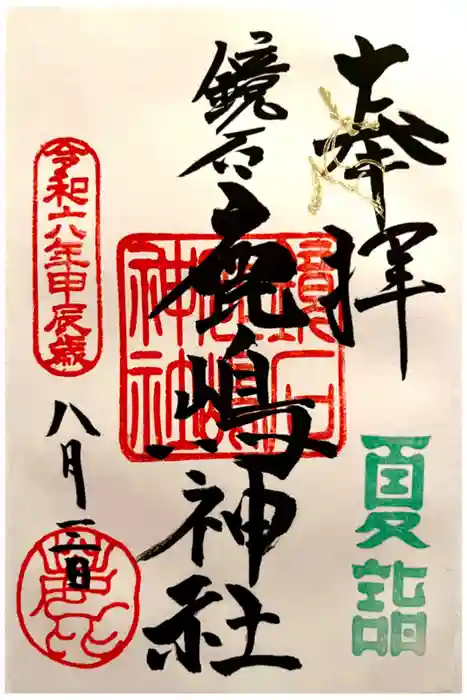 奉拝
夏詣
鏡石鹿嶋神社
鏡石鹿嶋神社
令和六年甲辰歳
八月三日